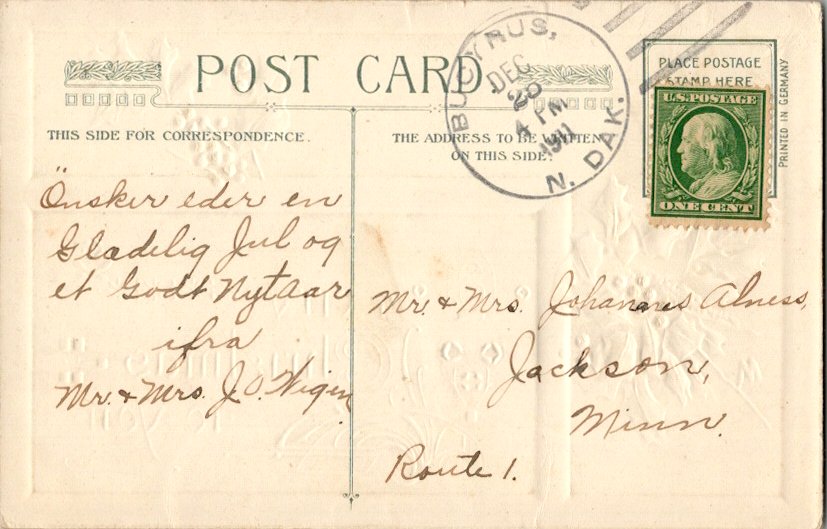 POST CARD
THIS SIDE FOR CORRESPONDENCE.
THE ADDRESS TO BE WRITTEN
ON THIS SIDE.
BUCYRUS,
DEC
20
4 PM
1911
N. DAK.
PLACE POSTAGE
STAMP HERE
PRINTED IN GERMANY
U.S. POSTAGE
ONE CENT
Önsker eder en
Gladelig Jul og
et Godt Nytaar
ifra
Mr. & Mrs. J. O. Wigen
Mr. & Mrs. Johannes Alness,
Jackson,
Minn.
Route 1.